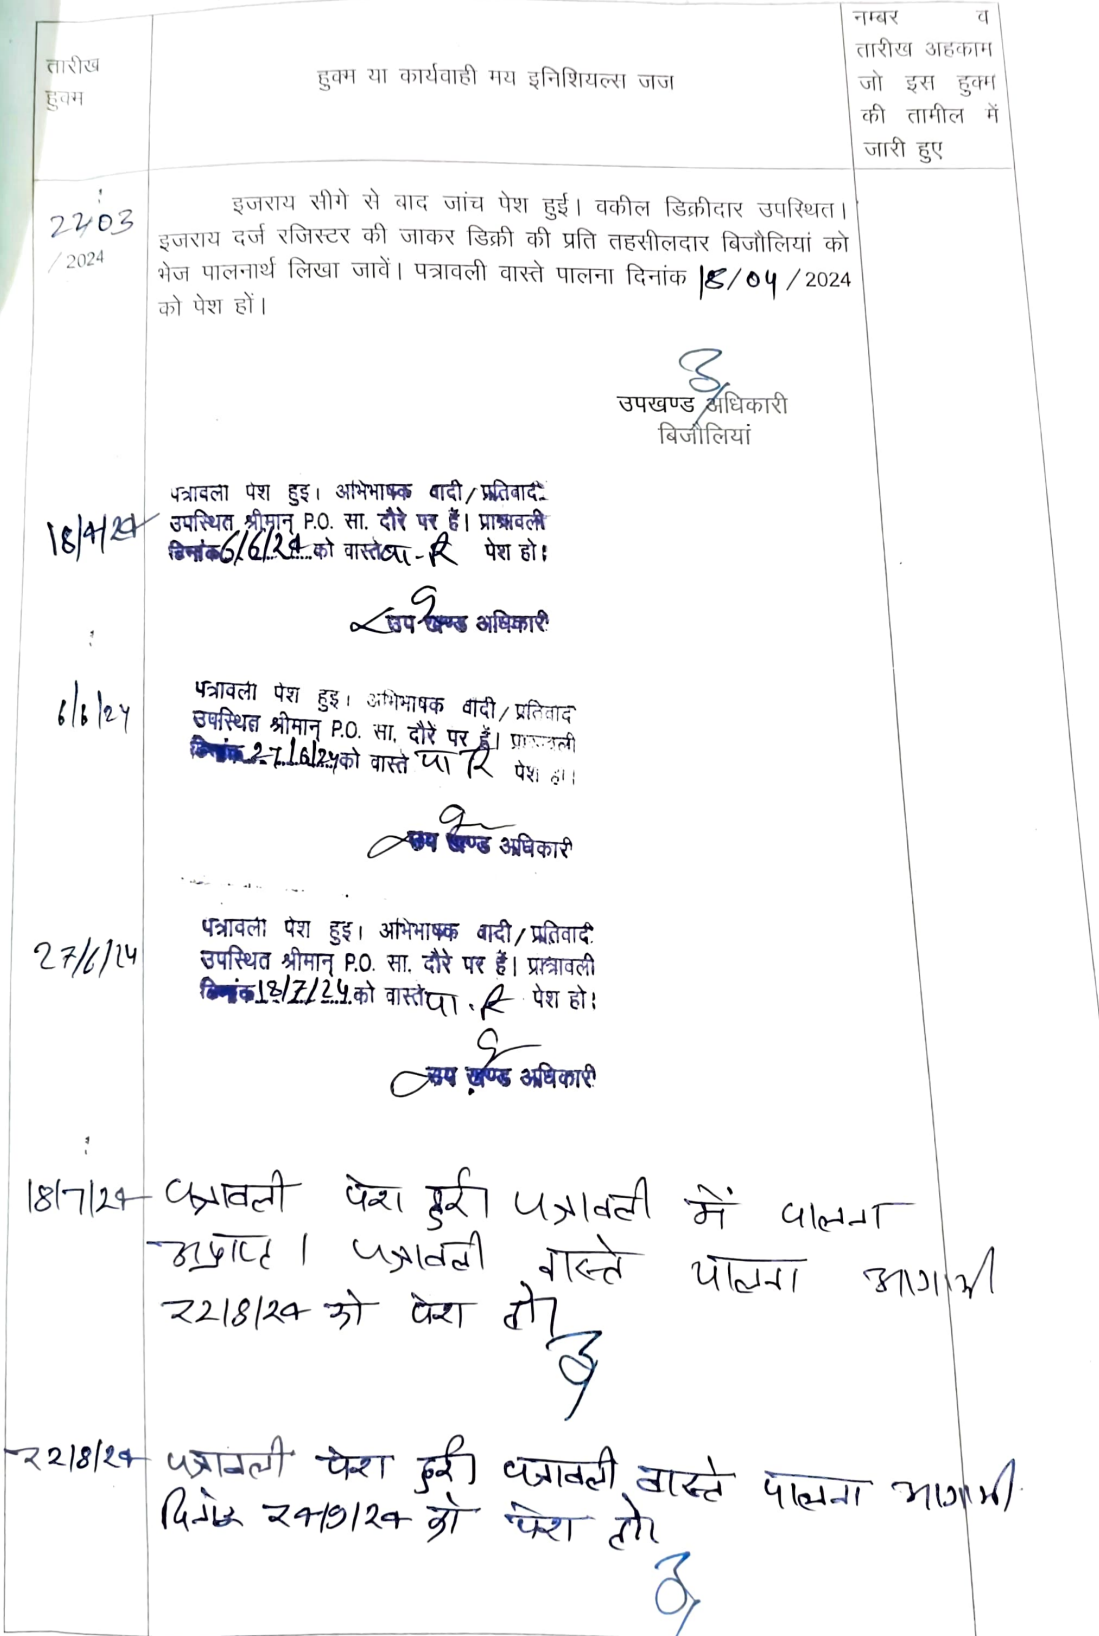 तारीख
हुक्म
हुक्म या कार्यवाही मय इनिशियल्स जज
नम्बर व
तारीख अहकाम
जो इस हुक्म
की तामील में
जारी हुए
22/03
/2024
इजराय सीगे से बाद जांच पेश हुई। वकील डिक्रीदार उपस्थित।
इजराय दर्ज रजिस्टर की जाकर डिक्री की प्रति तहसीलदार बिजौलियां को
भेज पालनार्थ लिखा जावें। पत्रावली वास्ते पालना दिनांक 18/04/2024
को पेश हों।
उपखण्ड अधिकारी
बिजौलियां
18/4/24
पत्रावली पेश हुइ। अभिभाषक वादी/प्रतिवादी
उपस्थित श्रीमान् P.O. सा. दौरे पर हैं। प्रात्रावली
दिनांक 6/6/24 को वास्ते पा-रि पेश हो।
उप खण्ड अधिकारी
6/6/24
पत्रावली पेश हुइ। अभिभाषक वादी/प्रतिवाद
उपस्थित श्रीमान् P.O. सा. दौरे पर हैं। प्रात्रावली
दिनांक 27/6/24 को वास्ते पा रि पेश हो।
उप खण्ड अधिकारी
27/6/24
पत्रावली पेश हुइ। अभिभाषक वादी/प्रतिवादी
उपस्थित श्रीमान् P.O. सा. दौरे पर हैं। प्रात्रावली
दिनांक 18/7/24 को वास्ते पा.रि पेश हो।
उप खण्ड अधिकारी
18/7/24 पत्रावली पेश हुई। पत्रावली में पालना
अप्राप्त। पत्रावली वास्ते पालना आगामी
22/8/24 को पेश हो।
22/8/24 पत्रावली पेश हुई। पत्रावली वास्ते पालना आगामी
दिनांक 24/9/24 को पेश हो।